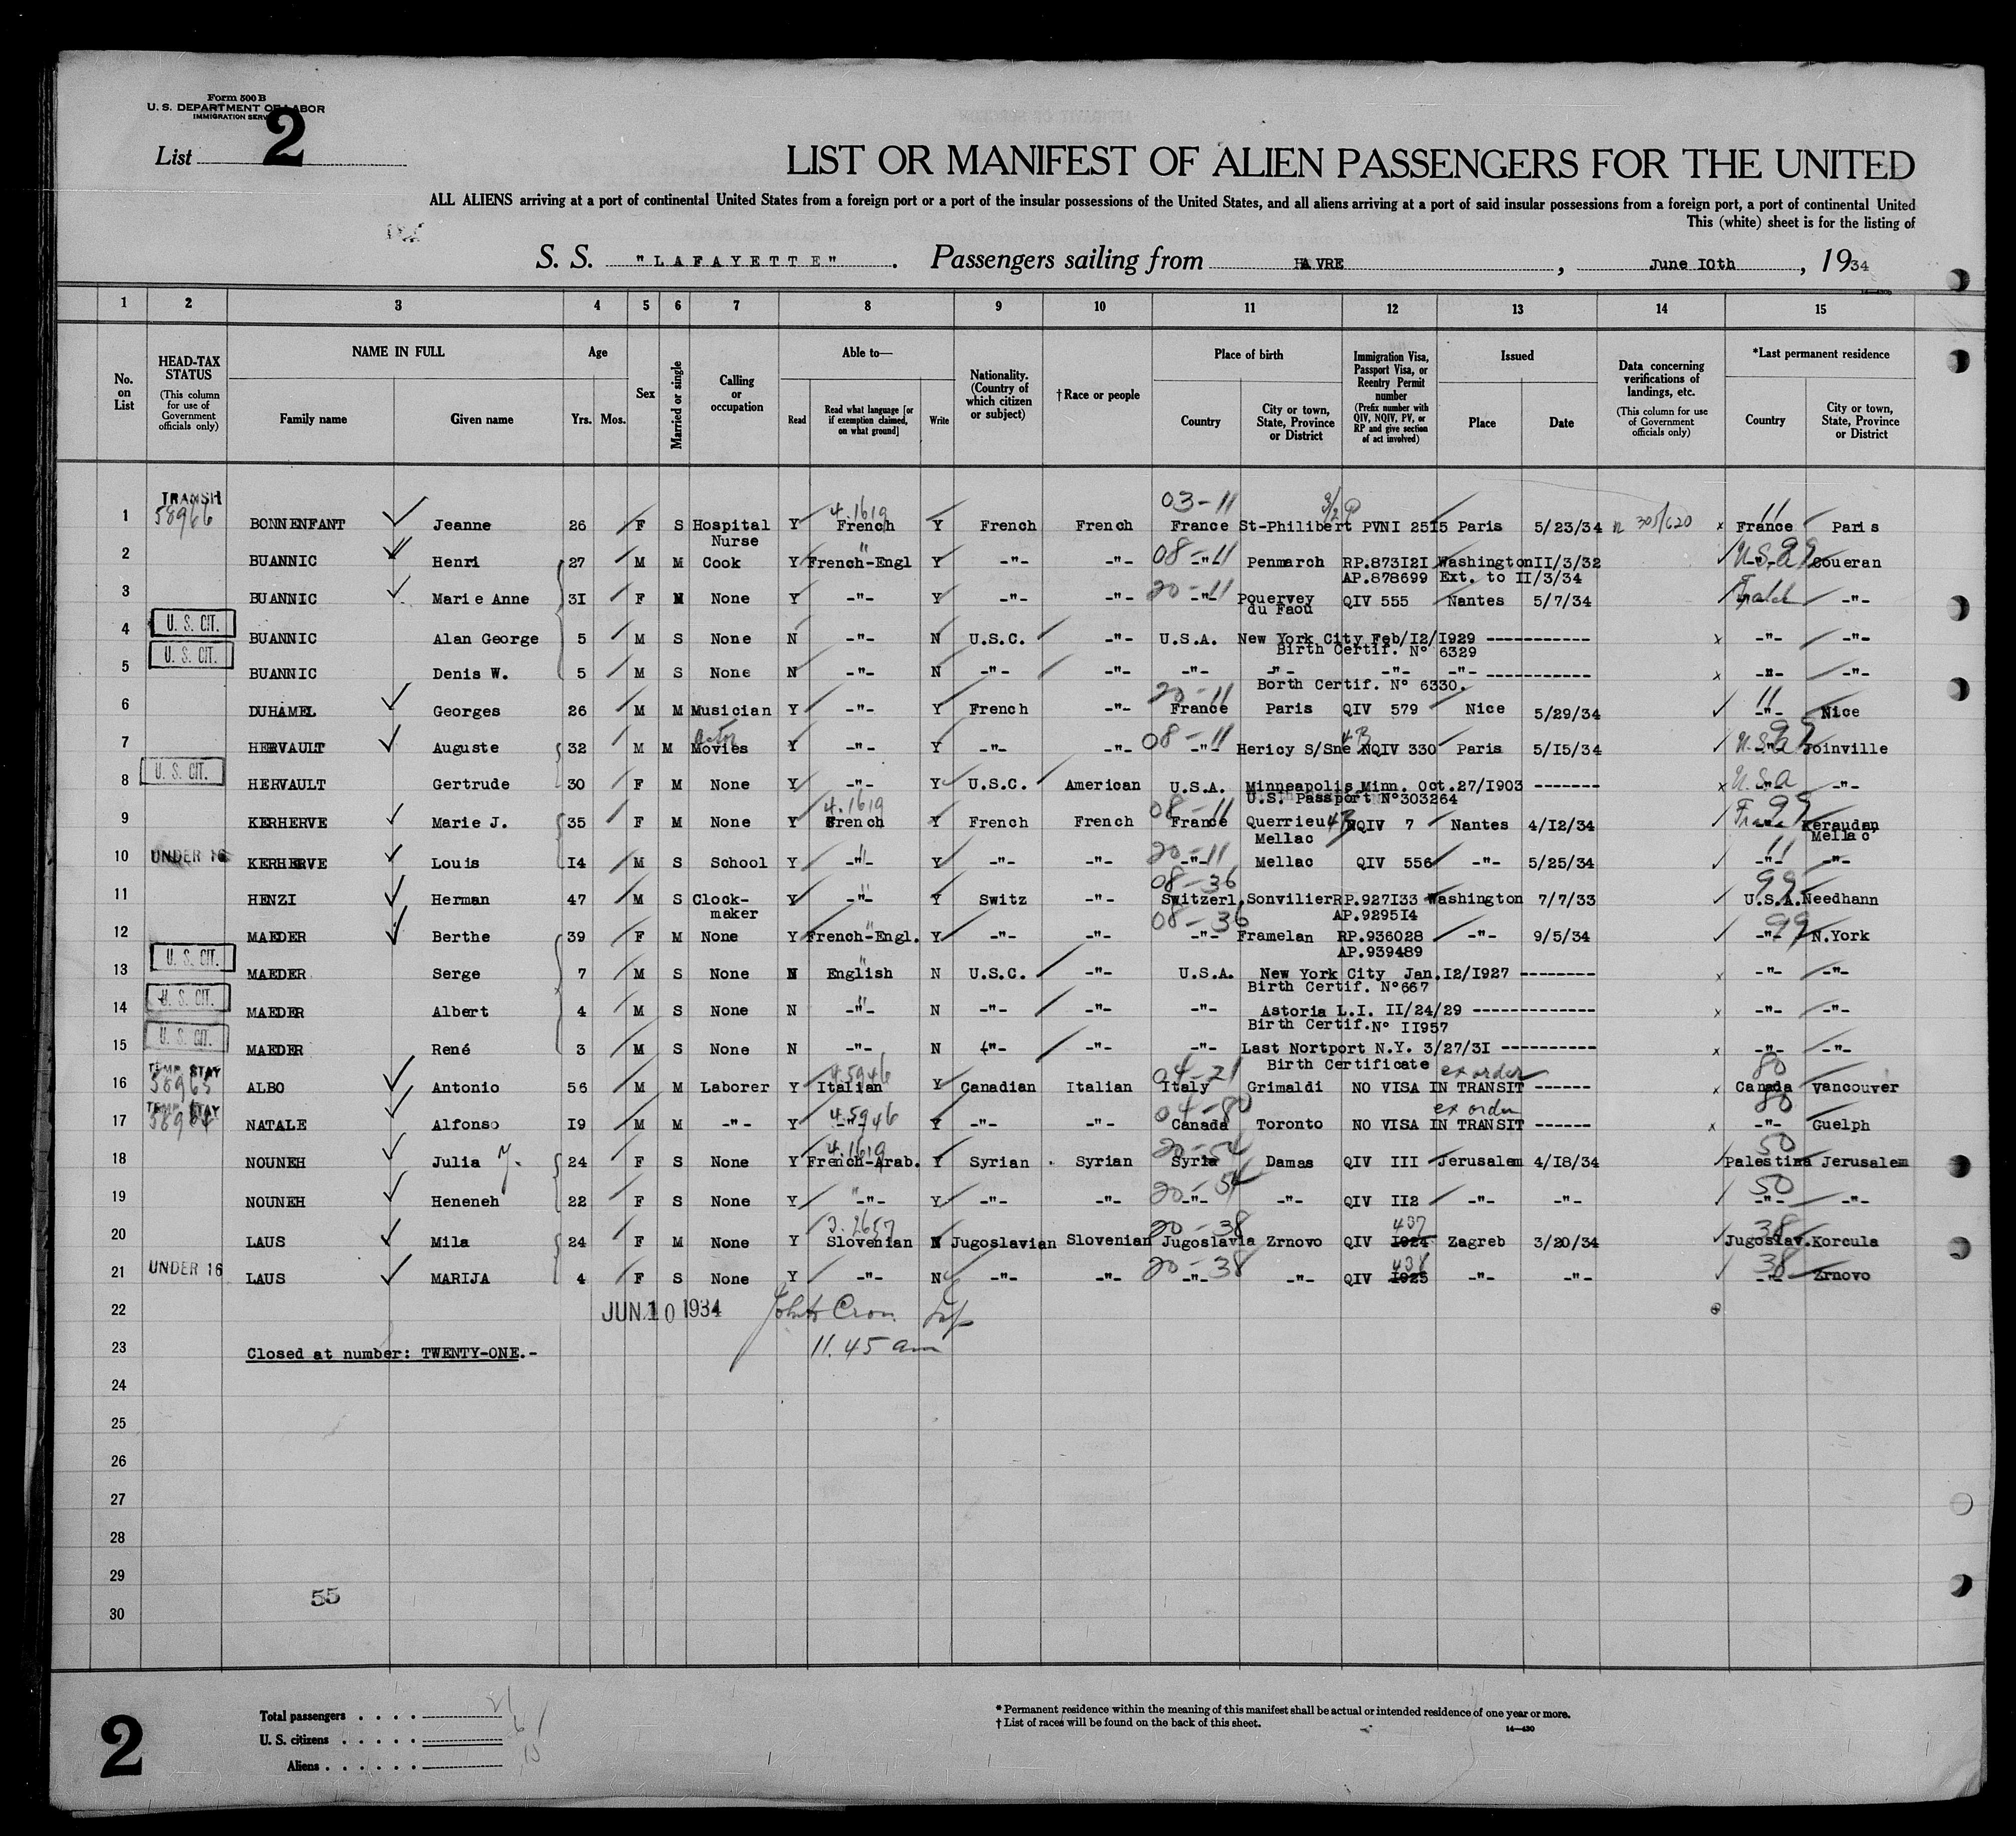 Form 500 B
U. S. DEPARTMENT OF LABOR
IMMIGRATION SERV
List 2
LIST OR MANIFEST OF ALIEN PASSENGERS FOR THE UNITED
ALL ALIENS arriving at a port of continental United States from a foreign port or a port of the insular possessions of the United States, and all aliens arriving at a port of said insular possessions from a foreign port, a port of continental United
This (white) sheet is for the listing of
S. S. "LAFAYETTE". Passengers sailing from HAVRE, June I0th, 1934
1 2 3 4 5 6 7 8 9 10 11 12 13 14 15
No. on List
HEAD-TAX STATUS (This column for use of Government officials only)
NAME IN FULL Family name Given name
Age Yrs. Mos.
Sex
Married or single
Calling or occupation
Able to— Read Read what language [or if exemption claimed, on what ground] Write
Nationality. (Country of which citizen or subject)
† Race or people
Place of birth Country City or town, State, Province or District
Immigration Visa, Passport Visa, or Reentry Permit number (Prefix number with QIV, NQIV, PV, or RP and give section of act involved)
Issued Place Date
Data concerning verifications of landings, etc. (This column for use of Government officials only)
*Last permanent residence Country City or town, State, Province or District
03-11
1 TRANSH 58966 BONNENFANT Jeanne 26 F S Hospital Nurse Y 4.1619 French Y French French France St-Philibert PVNI 25I5 Paris 5/23/34 305/620 x France 11 Paris
2 BUANNIC Henri 27 M M Cook Y French-Engl Y -"- -"- 08-11 -"- Penmarch RP.873I2I Washington II/3/32 U.S.A 99 Coueran
AP.878699 Ext. to II/3/34
3 BUANNIC Marie Anne 3I F M None Y -"- Y -"- -"- 20-11 -"- Pouervey du Faou QIV 555 Nantes 5/7/34 -"-
4 U. S. CIT. BUANNIC Alan George 5 M S None N -"- N U.S.C. -"- U.S.A. New York City Feb/I2/I929 ----------- x -"- -"-
Birth Certif. N° 6329
5 U. S. CIT. BUANNIC Denis W. 5 M S None N -"- N -"- -"- -"- -"- -"- -"- ----------- x -"- -"-
Borth Certif. N° 6330.
6 DUHAMEL Georges 26 M M Musician Y -"- Y French -"- 20-11 France Paris QIV 579 Nice 5/29/34 11 -"- Nice
7 HERVAULT Auguste 32 M M Actor Movies Y -"- Y -"- -"- 08-11 -"- Hericy S/Sne 4B NQIV 330 Paris 5/I5/34 U.S.A 99 Joinville
8 U. S. CIT. HERVAULT Gertrude 30 F M None Y -"- Y U.S.C. American U.S.A. Minneapolis Minn. Oct.27/I903 ------- x U.S.A -"- -"-
U.S. Passport N°303264
9 KERHERVE Marie J. 35 F M None Y 4.1619 French Y French French 08-11 France Querrieu Mellac 4B NQIV 7 Nantes 4/I2/34 France 99 Keraudan Mellac
10 UNDER 16 KERHERVE Louis I4 M S School Y -"- Y -"- -"- 20-11 -"- Mellac QIV 556 -"- 5/25/34 11 -"- -"-
11 HENZI Herman 47 M S Clock-maker Y -"- Y Switz -"- 08-36 Switzerl. Sonvilier RP.927I33 Washington 7/7/33 99 U.S.A. Needhann
AP.9295I4
12 MAEDER Berthe 39 F M None Y French-Engl. Y -"- -"- 08-36 -"- Framelan RP.936028 -"- 9/5/34 99 -"- N.York
AP.939489
13 U. S. CIT. MAEDER Serge 7 M S None N English N U.S.C. -"- U.S.A. New York City Jan.I2/I927 -------- x -"- -"-
Birth Certif. N°667
14 U. S. CIT. MAEDER Albert 4 M S None N -"- N -"- -"- -"- Astoria L.I. II/24/29 ------------- x -"- -"-
Birth Certif. N° II957
15 U. S. CIT. MAEDER René 3 M S None N -"- N -"- -"- -"- Last Nortport N.Y. 3/27/3I ---------- x -"- -"-
Birth Certificate
16 TEMP. STAY 58965 ALBO Antonio 56 M M Laborer Y 45946 Italian Y Canadian Italian 04-21 Italy Grimaldi NO VISA IN TRANSIT ex order ------ x 80 Canada Vancouver
17 TEMP. STAY 58964 NATALE Alfonso I9 M M -"- Y 4.5946 -"- Y -"- -"- 04-80 Canada Toronto NO VISA IN TRANSIT ex order ------ x 80 -"- Guelph
18 NOUNEH Julia 24 F S None Y 4.1619 French-Arab. Y Syrian Syrian 20-54 Syria Damas QIV III Jerusalem 4/I8/34 50 Palestina Jerusalem
19 NOUNEH Heneneh 22 F S None Y -"- Y -"- -"- 20-54 -"- -"- QIV II2 -"- -"- 50 -"- -"-
20 LAUS Mila 24 F M None Y 3.2657 Slovenian N Jugoslavian Slovenian 20-38 Jugoslavia Zrnovo QIV 437 I924 Zagreb 3/20/34 38 Jugoslav. Korcula
21 UNDER 16 LAUS MARIJA 4 F S None Y -"- N -"- -"- 20-38 -"- -"- QIV 438 I925 -"- -"- 38 -"- Zrnovo
22 JUN 10 1934
23 Closed at number: TWENTY-ONE.- 11.45 am
24
25
26
27
28
29
55
30
2
Total passengers . . . . 21
U. S. citizens . . . . . 6
Aliens . . . . . . 15
* Permanent residence within the meaning of this manifest shall be actual or intended residence of one year or more.
† List of races will be found on the back of this sheet.
14—430